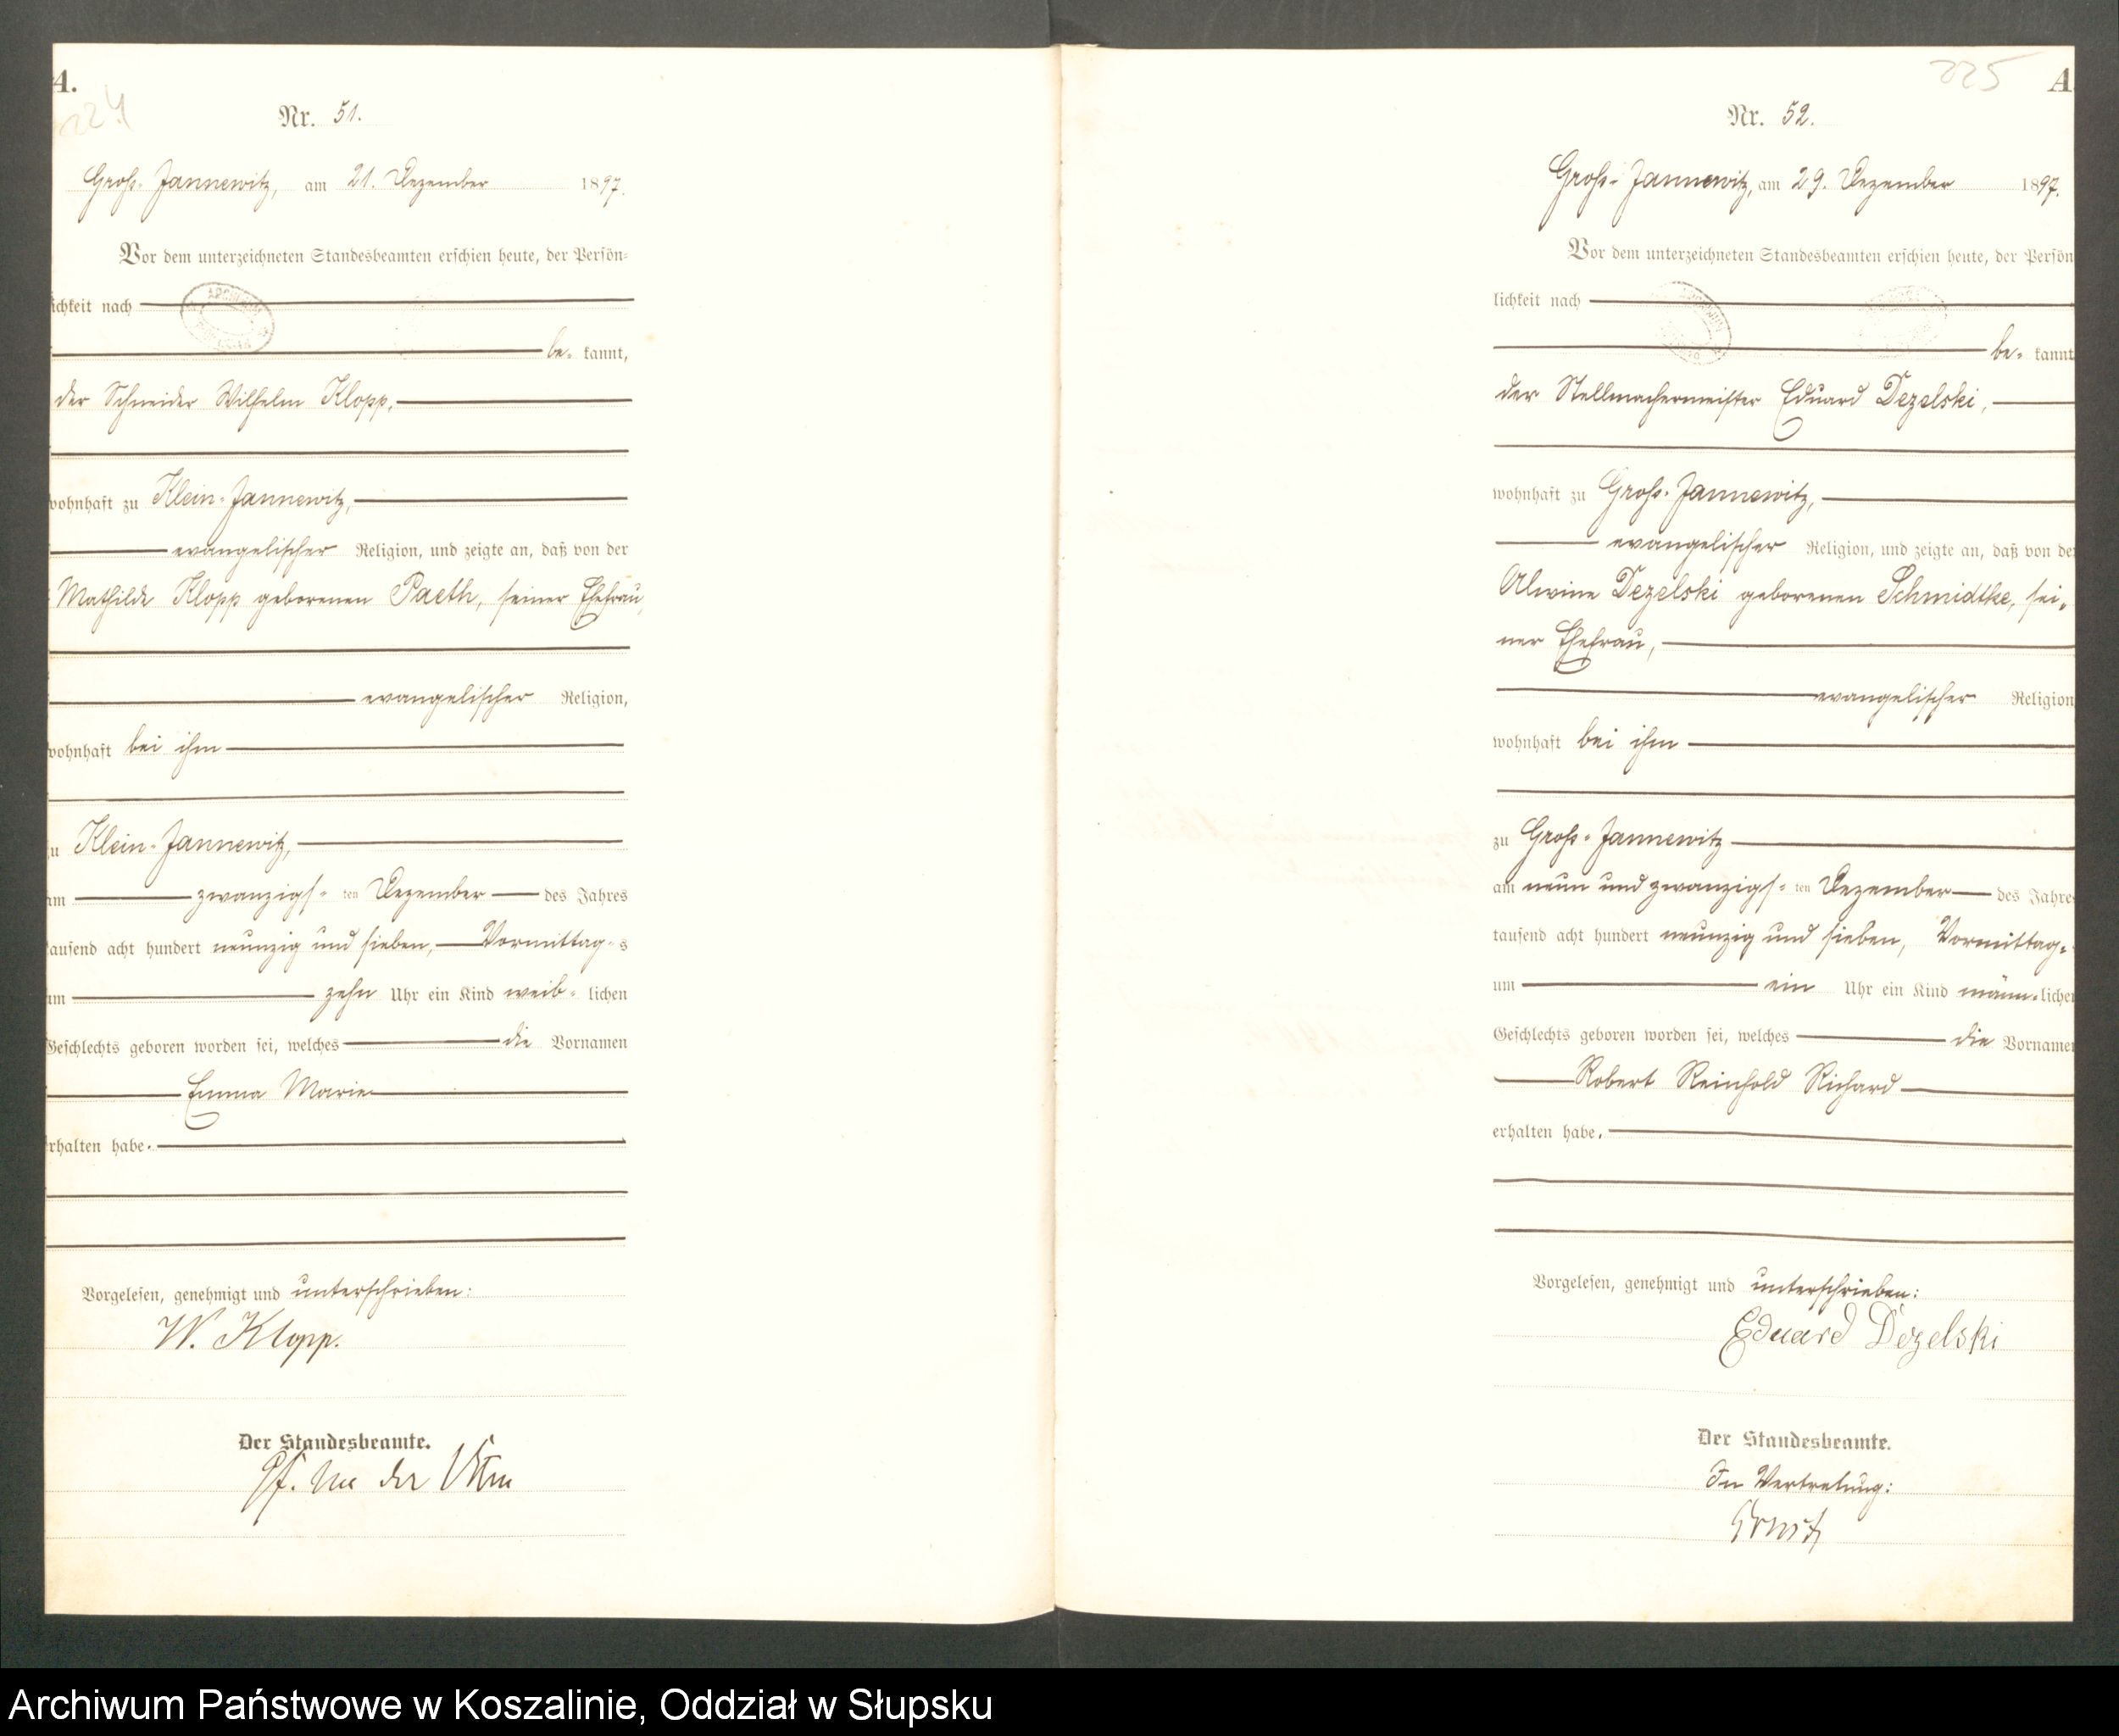 A.
224
Nr. 51.
Groß-Jannewitz, am 21. Dezember 1897.
Vor dem unterzeichneten Standesbeamten erschien heute, der Persön-
lichkeit nach
be- kannt,
der Schneider Wilhelm Klopp,
wohnhaft zu Klein-Jannewitz,
evangelischer Religion, und zeigte an, daß von der
Mathilde Klopp geborenen Paeth, seiner Ehefrau,
evangelischer Religion,
wohnhaft bei ihm
zu Klein-Jannewitz,
am zwanzigs- ten Dezember des Jahres
tausend acht hundert neunzig und sieben, Vormittag-s
um zehn Uhr ein Kind weib- lichen
Geschlechts geboren worden sei, welches die Vornamen
Emma Marie
erhalten habe.
Vorgelesen, genehmigt und unterschrieben:
W. Klopp.
Der Standesbeamte.
225
A.
Nr. 52.
Groß-Jannewitz, am 29. Dezember 1897.
Vor dem unterzeichneten Standesbeamten erschien heute, der Persön
lichkeit nach
be- kannt
der Stellmachermeister Eduard Dezelski,
wohnhaft zu Groß-Jannewitz,
evangelischer Religion, und zeigte an, daß von der
Alwine Dezelski geborenen Schmidtke, sei-
ner Ehefrau,
evangelischer Religion
wohnhaft bei ihm
zu Groß-Jannewitz
am neun und zwanzigs- ten Dezember des Jahres
tausend acht hundert neunzig und sieben, Vormittag-
um ein Uhr ein Kind männ-lichen
Geschlechts geboren worden sei, welches die Vornamen
Robert Reinhold Richard
erhalten habe.
Vorgelesen, genehmigt und unterschrieben:
Eduard Dezelski
Der Standesbeamte.
In Vertretung:
Archiwum Państwowe w Koszalinie, Oddział w Słupsku